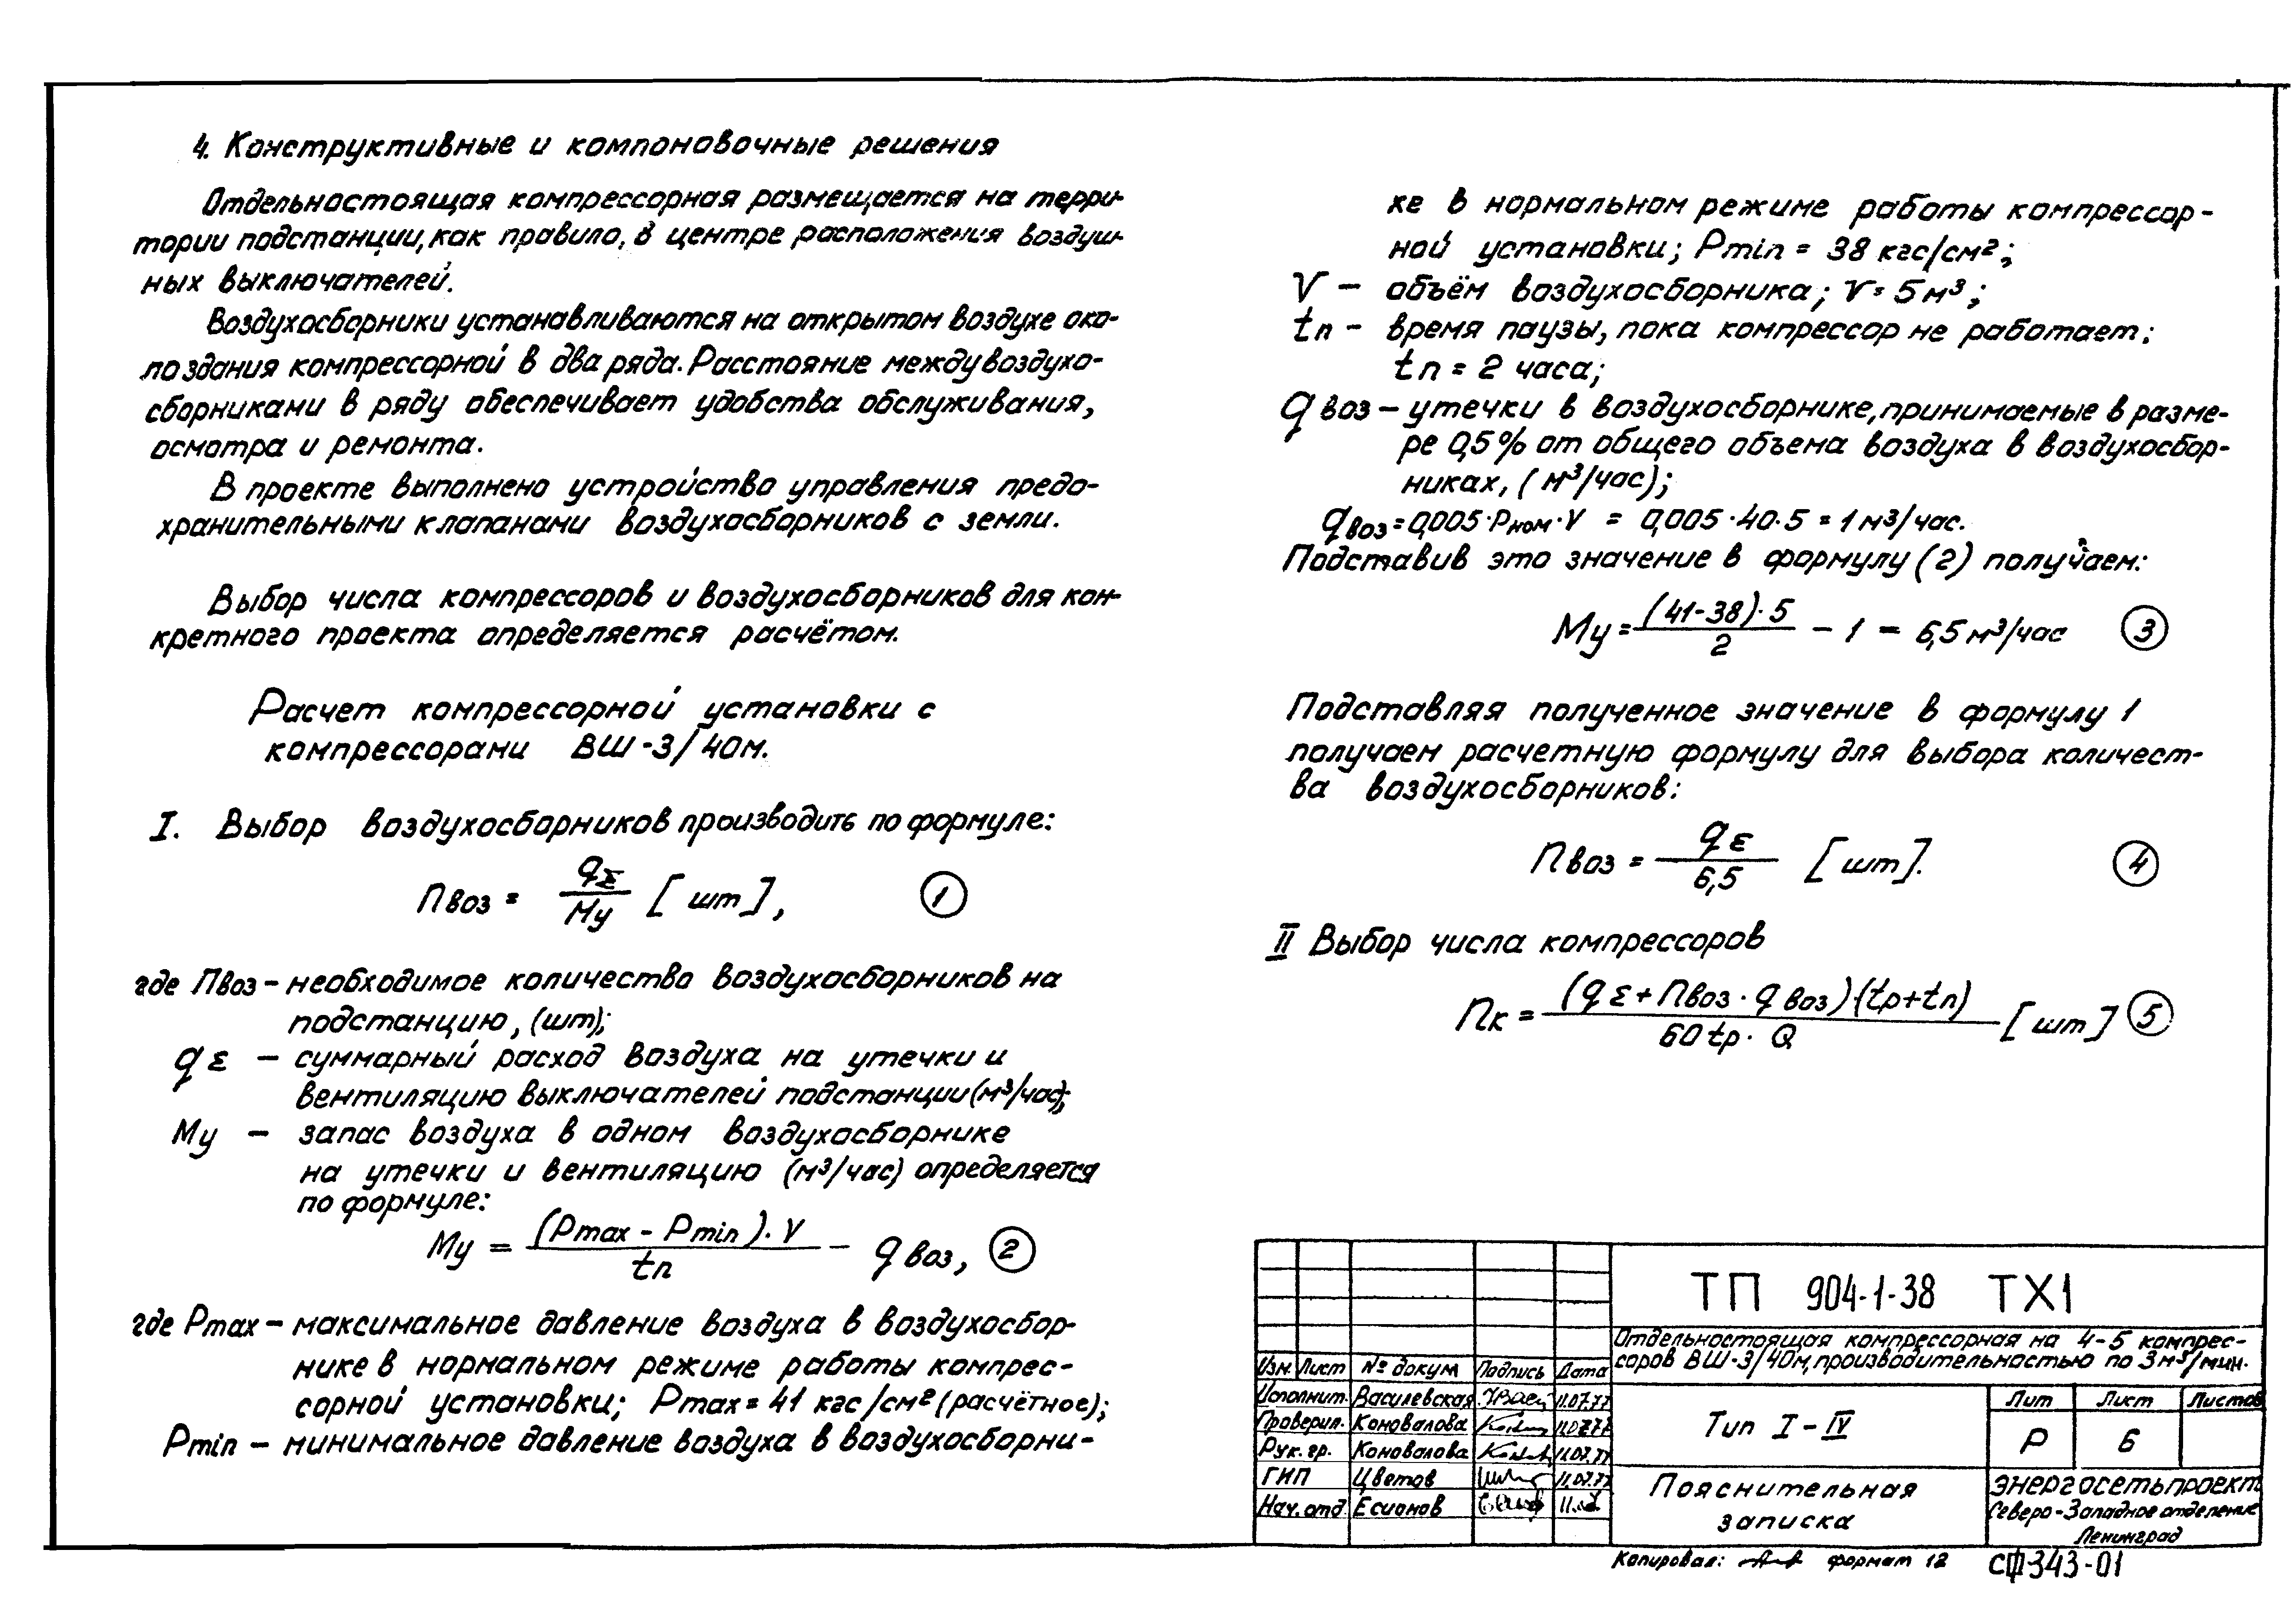 4. Конструктивные и компоновочные решения
Отдельностоящая компрессорная размещается на терри-
тории подстанции, как правило, в центре расположения воздуш-
ных выключателей.
Воздухосборники устанавливаются на открытом воздухе око-
ло здания компрессорной в два ряда. Расстояние между воздухо-
сборниками в ряду обеспечивает удобства обслуживания,
осмотра и ремонта.
В проекте выполнено устройство управления предо-
хранительными клапанами воздухосборников с земли.
Выбор числа компрессоров и воздухосборников для кон-
кретного проекта определяется расчётом.
Расчет компрессорной установки с
компрессорами ВШ-3/40м.
I. Выбор воздухосборников производить по формуле:
nвоз = qΣ / Му [шт], 1
где nвоз – необходимое количество воздухосборников на
подстанцию, (шт);
qε – суммарный расход воздуха на утечки и
вентиляцию выключателей подстанции (м³/час);
Му – запас воздуха в одном воздухосборнике
на утечки и вентиляцию (м³/час) определяется
по формуле:
Му = (Pmax - Pmin)·V / tп - qвоз, 2
где Pmax – максимальное давление воздуха в воздухосбор-
нике в нормальном режиме работы компрес-
сорной установки; Pmax = 41 кгс/см² (расчётное);
Pmin – минимальное давление воздуха в воздухосборни-
ке в нормальном режиме работы компрессор-
ной установки; Pmin = 38 кгс/см²;
V – объём воздухосборника; V = 5 м³;
tп – время паузы, пока компрессор не работает;
tп = 2 часа;
qвоз – утечки в воздухосборнике, принимаемые в разме-
ре 0,5% от общего объема воздуха в воздухосбор-
никах, (м³/час);
qвоз = 0,005·Рном·V = 0,005·40·5 = 1 м³/час.
Подставив это значение в формулу (2) получаем:
Му = (41-38)·5 / 2 - 1 = 6,5 м³/час 3
Подставляя полученное значение в формулу 1
получаем расчетную формулу для выбора количест-
ва воздухосборников:
nвоз = qε / 6,5 [шт]. 4
II Выбор числа компрессоров
nк = (qε + nвоз·qвоз)·(tр+tп) / 60tр·Q [шт] 5
ТП 904-1-38 ТХ1
Отдельностоящая компрессорная на 4-5 компрес-
соров ВШ-3/40м, производительностью по 3 м³/мин.
Изм. Лист № докум Подпись Дата
Исполнит. Василевская 11.07.77
Проверил. Коновалова 11.07.77
Рук. гр. Коновалова 11.07.77
ГИП Цветов 11.07.77
Нач. отд Есионов
Тип I – IV
Лит Лист Листов
Р 6
Пояснительная
записка
Энергосетьпроект
Северо-Западное отделение
Ленинград
Копировал: формат 12 СФ343-01